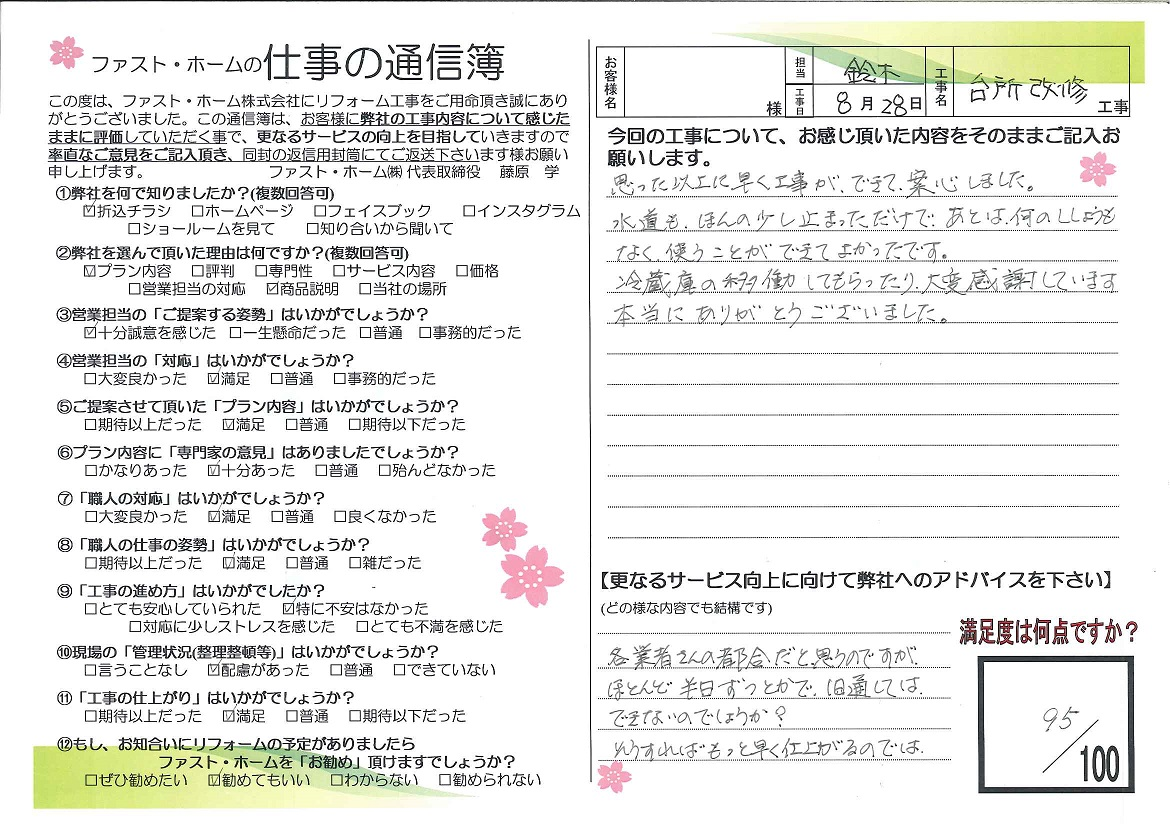 ファスト・ホームの仕事の通信簿
この度は、ファスト・ホーム株式会社にリフォーム工事をご用命頂き誠にあり
がとうございました。この通信簿は、お客様に弊社の工事内容について感じた
ままに評価していただく事で、更なるサービスの向上を目指していきますので
率直なご意見をご記入頂き、同封の返信用封筒にてご返送下さいます様お願い
申し上げます。 ファスト・ホーム㈱ 代表取締役 藤原 学
①弊社を何で知りましたか？(複数回答可)
☑折込チラシ □ホームページ □フェイスブック □インスタグラム
□ショールームを見て □知り合いから聞いて
②弊社を選んで頂いた理由は何ですか？(複数回答可)
☑プラン内容 □評判 □専門性 □サービス内容 □価格
□営業担当の対応 ☑商品説明 □当社の場所
③営業担当の「ご提案する姿勢」はいかがでしょうか？
☑十分誠意を感じた □一生懸命だった □普通 □事務的だった
④営業担当の「対応」はいかがでしょうか？
□大変良かった ☑満足 □普通 □事務的だった
⑤ご提案させて頂いた「プラン内容」はいかがでしょうか？
□期待以上だった ☑満足 □普通 □期待以下だった
⑥プラン内容に「専門家の意見」はありましたでしょうか？
□かなりあった ☑十分あった □普通 □殆んどなかった
⑦「職人の対応」はいかがでしょうか？
□大変良かった ☑満足 □普通 □良くなかった
⑧「職人の仕事の姿勢」はいかがでしょうか？
□期待以上だった ☑満足 □普通 □雑だった
⑨「工事の進め方」はいかがでしたか？
□とても安心していられた ☑特に不安はなかった
□対応に少しストレスを感じた □とても不満を感じた
⑩現場の「管理状況(整理整頓等)」はいかがでしょうか？
□言うことなし ☑配慮があった □普通 □できていない
⑪「工事の仕上がり」はいかがでしょうか？
□期待以上だった ☑満足 □普通 □期待以下だった
⑫もし、お知合いにリフォームの予定がありましたら
ファスト・ホームを「お勧め」頂けますでしょうか？
□ぜひ勧めたい ☑勧めてもいい □わからない □勧められない
お客様名 様 担当 鈴木 工事日 8月28日 工事名 台所改修 工事
今回の工事について、お感じ頂いた内容をそのままご記入お
願いします。
思った以上に早く工事が、できて、安心しました。
水道も、ほんの少し止まっただけで、あとは、何のししょうも
なく、使うことができてよかったです。
冷蔵庫の移働してもらったり、大変感謝しています
本当にありがとうございました。
【更なるサービス向上に向けて弊社へのアドバイスを下さい】
(どの様な内容でも結構です)
各業者さんの都合だと思うのですが、
ほとんど半日ずつとかで、1日通しては、
できないのでしょうか？
そうすればもっと早く仕上がるのでは、
満足度は何点ですか？
95/100